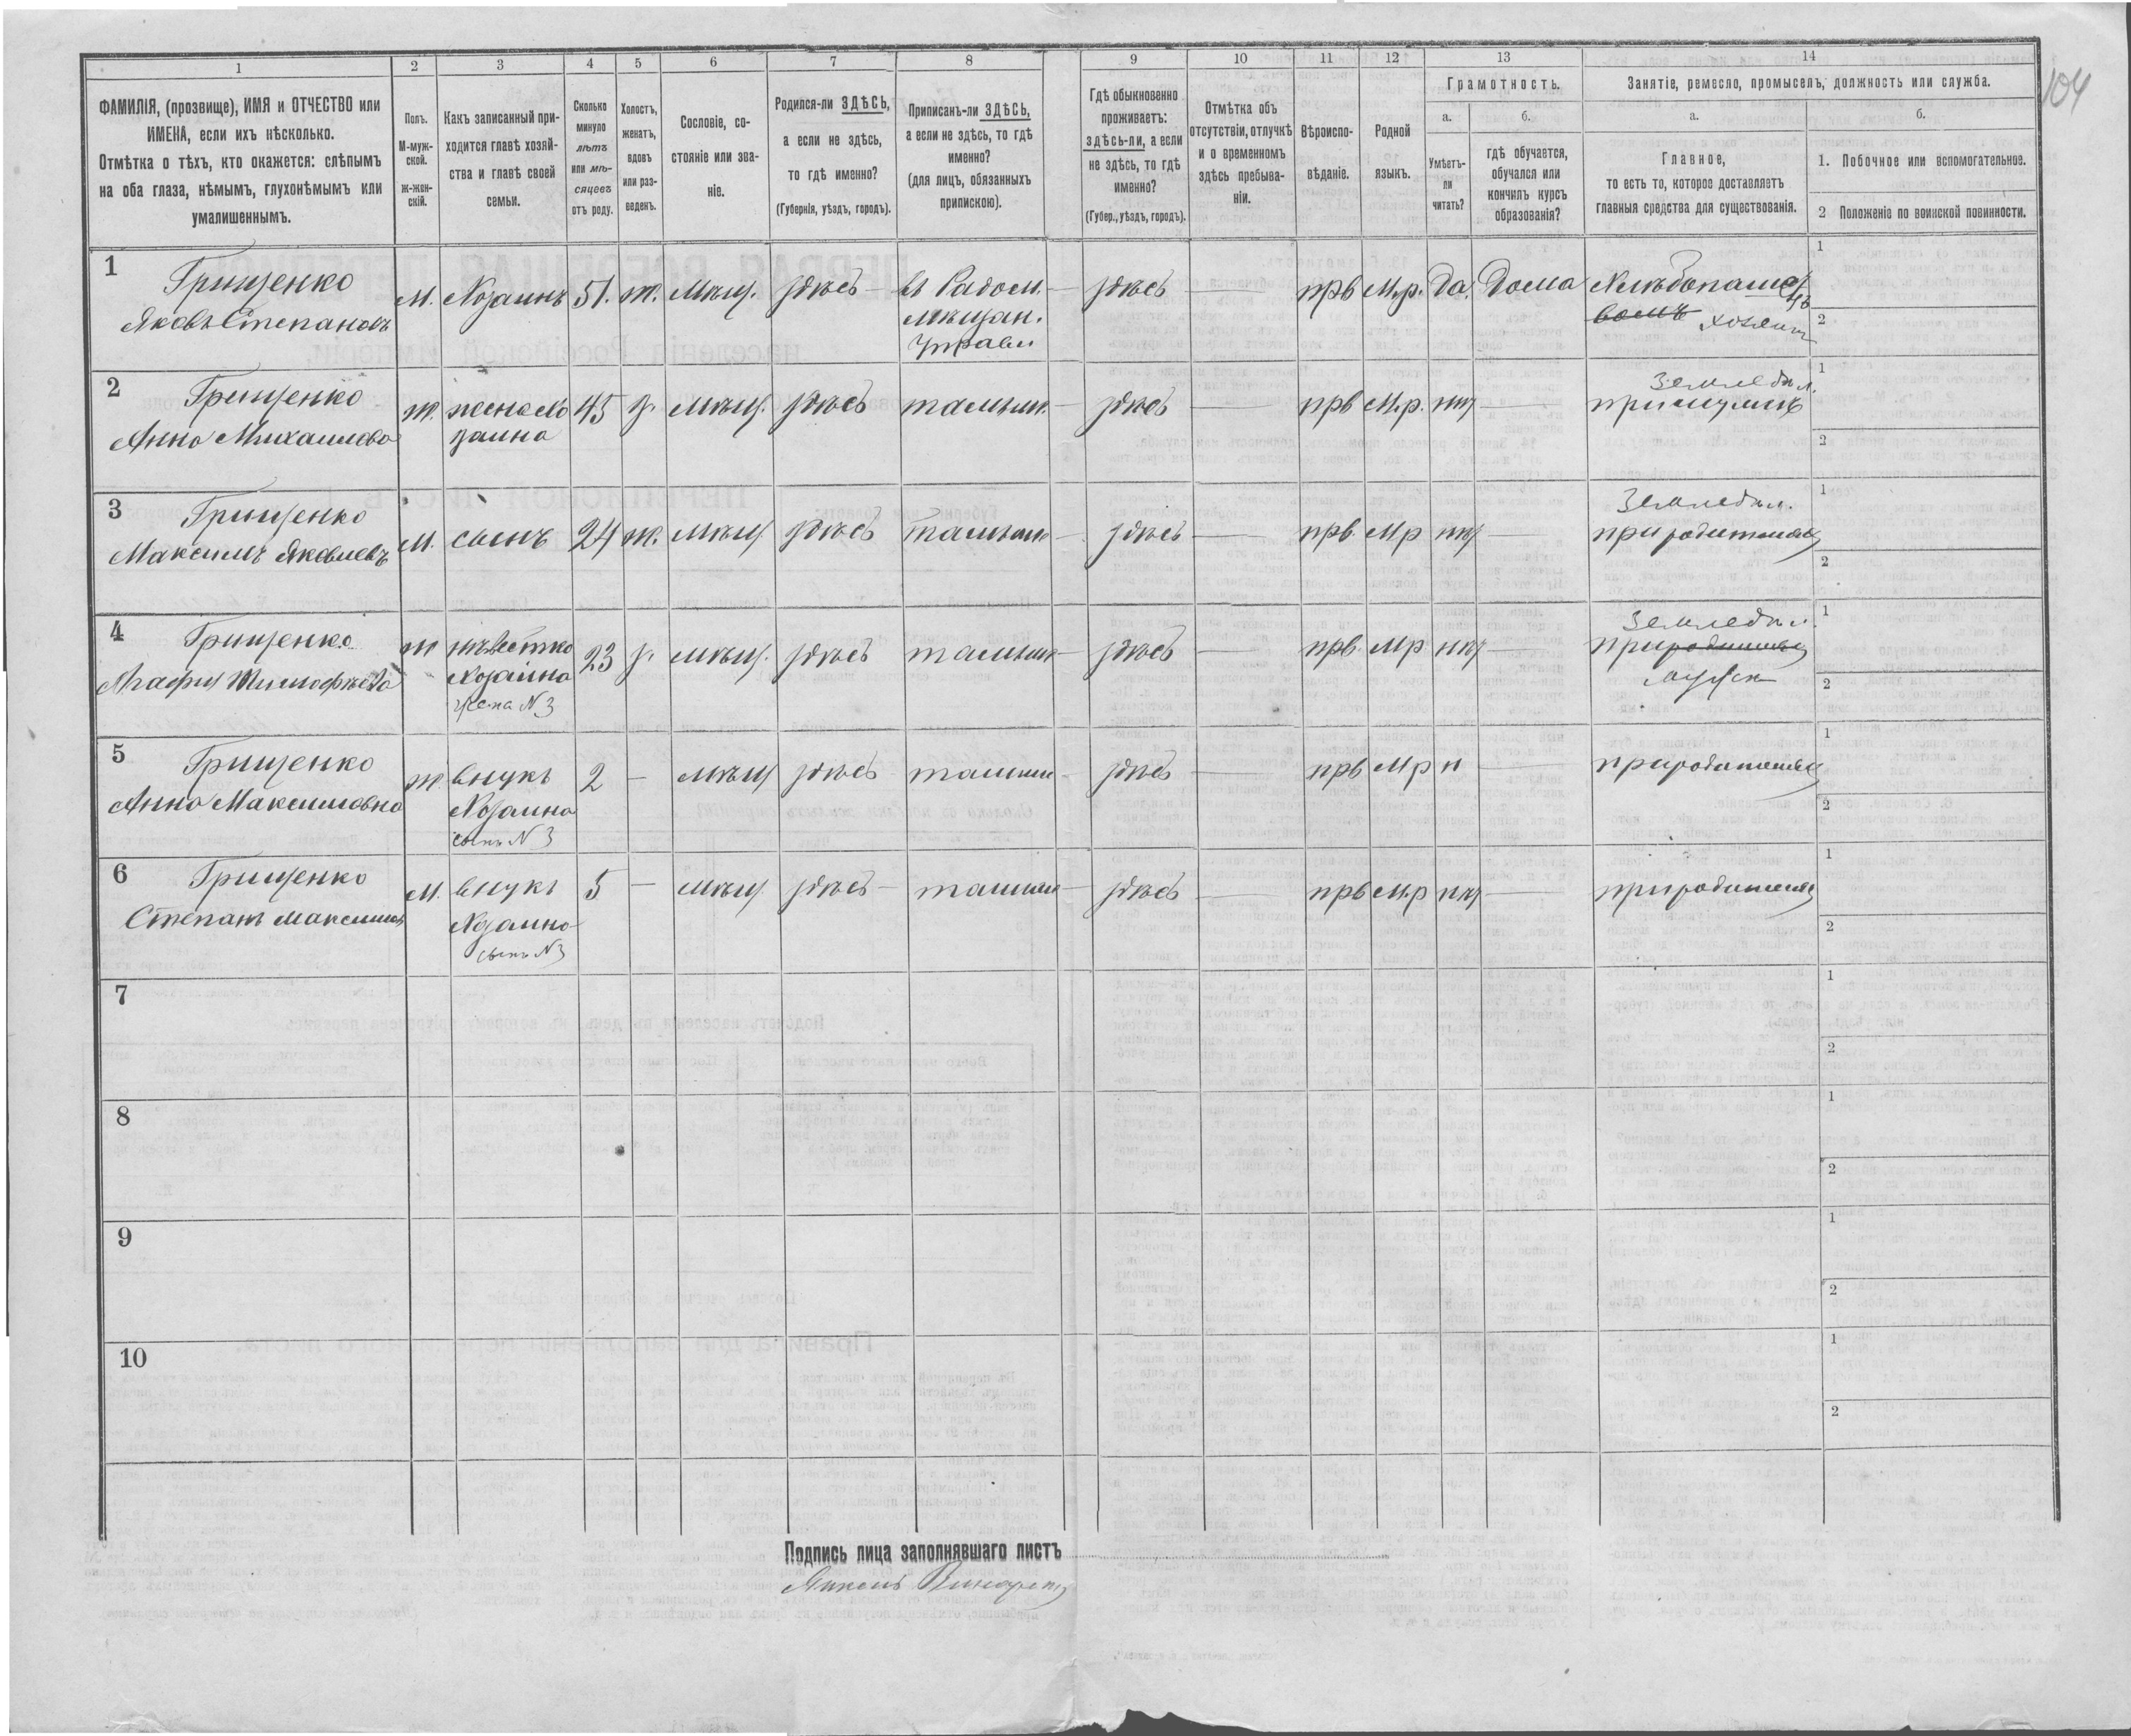 104
1 2 3 4 5 6 7 8 9 10 11 12 13 14
ФАМИЛІЯ, (прозвище), ИМЯ и ОТЧЕСТВО или
ИМЕНА, если ихъ нѣсколько.
Отмѣтка о тѣхъ, кто окажется: слѣпымъ
на оба глаза, нѣмымъ, глухонѣмымъ или
умалишеннымъ.
Полъ.
М-муж-
ской.
Ж-жен-
скій.
Какъ записанный при-
ходится главѣ хозяй-
ства и главѣ своей
семьи.
Сколько
минуло
лѣтъ
или мѣ-
сяцевъ
отъ роду.
Холостъ,
женатъ,
вдовъ
или раз-
веденъ.
Сословіе, со-
стояніе или зва-
ніе.
Родился-ли ЗДѢСЬ,
а если не здѣсь,
то гдѣ именно?
(Губернія, уѣздъ, городъ).
Приписанъ-ли ЗДѢСЬ,
а если не здѣсь, то гдѣ
именно?
(для лицъ, обязанныхъ
припискою).
Гдѣ обыкновенно
проживаетъ:
здѣсь-ли, а если
не здѣсь, то гдѣ
именно?
(Губер., уѣздъ, городъ).
Отмѣтка объ
отсутствіи, отлучкѣ
и о временномъ
здѣсь пребыва-
ніи.
Вѣроиспо-
вѣданіе.
Родной
языкъ.
Грамотность.
а.
Умѣетъ-
ли
читать?
б.
гдѣ обучается,
обучался или
кончилъ курсъ
образованія?
Занятіе, ремесло, промыселъ, должность или служба.
а.
Главное,
то есть то, которое доставляетъ
главныя средства для существованія.
б.
1. Побочное или вспомогательное.
2 Положеніе по воинской повинности.
1 Грищенко
Яковъ Степановъ
М. Хозаинъ 51. ж. Мѣщ. здѣсь
въ Радом.
мѣщан.
управи
здѣсь — прв М.р. Да. Дома
Хлѣбопашец
хозяин
1
2
2 Грищенко
Анна Михаилова
ж. жена хо
заина
45 з. мѣщ. здѣсь тамъжѣ здѣсь — прв М.р. нѣ —
Земледѣл.
при мужѣ
1
2
3 Грищенко
Максимъ Яковлевъ
М. сынъ 24 ж. мѣщ здѣсь тамъже здѣсь — прв. М.р нѣ —
Земледѣл.
при родителях
1
2
4 Грищенко
Агафія Тимофѣева
ж нѣвестка
Хозаина
жена N 3
23 з. мѣщ. здѣсь тамъже здѣсь — прв. М.р нѣ —
Земледѣл.
при родителях
мужѣ
1
2
5 Грищенко
Анна Максимовна
ж. внукъ
Хозаина
сынъ N 3
2 — мѣщ здѣсь тамъже здѣсь — прв М.р н —
при родителях
1
2
6 Грищенко
Степанъ Максимов
М. внукъ
Хозаина
сынъ N 3
5 — мѣщ здѣсь тамъже здѣсь — прв М.р нѣ —
при родителях
1
2
7
1
2
8
1
2
9
1
2
10
1
2
Подпись лица заполнявшаго листъ